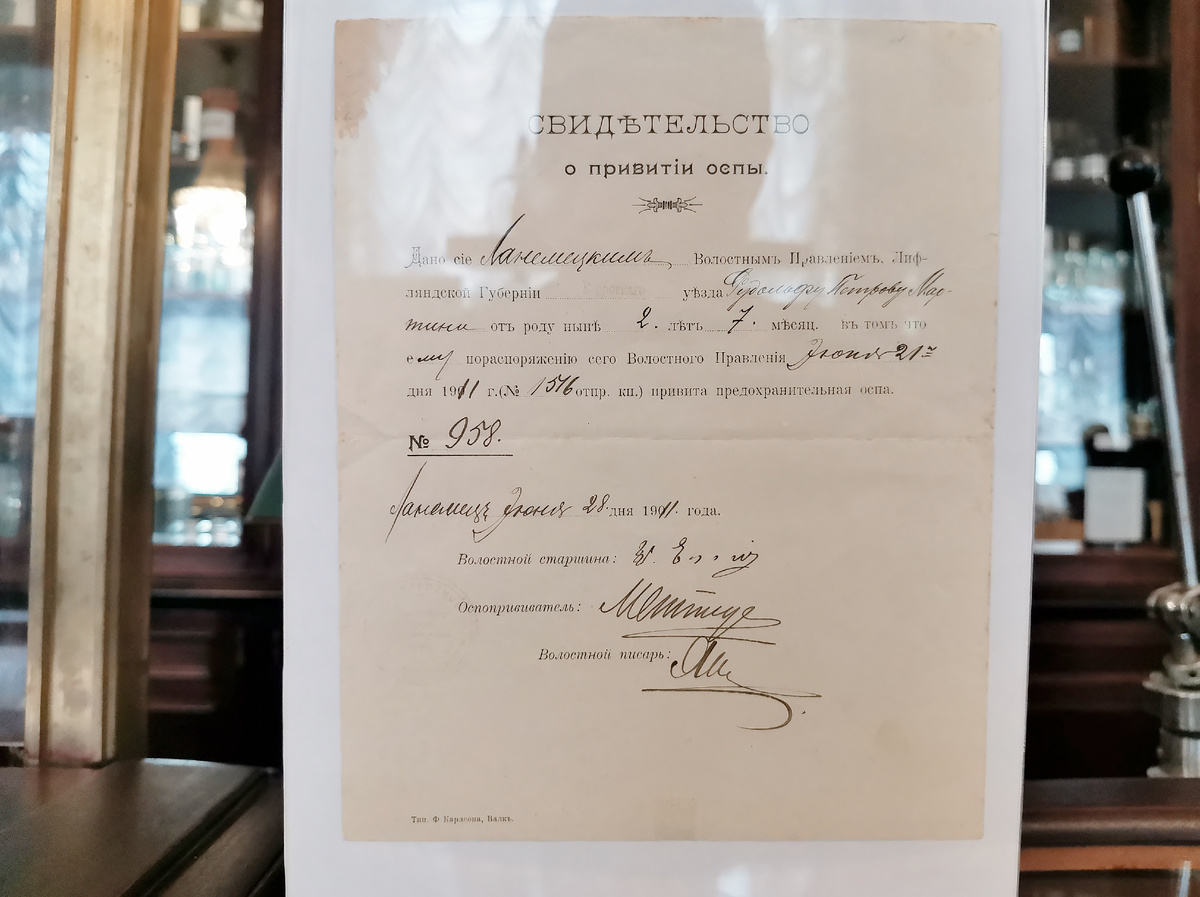 СВИДѢТЕЛЬСТВО
о привитіи оспы.
Дано сіе Ланемецкимъ Волостнымъ Правленіемъ, Лиф-
ляндской Губерніи уѣзда Рудольфу Петрову Мар-
тину отъ роду нынѣ 2. лѣтъ 7. мѣсяц. въ томъ что
ему пораспоряженію сего Волостного Правленія Іюня 21го
дня 1911 г.(№ 1516 отпр. кн.) привита предохранительная оспа.
№ 958.
Ланемецъ Іюня 28 дня 1911. года.
Волостной старшина:
Оспопрививатель:
Волостной писарь:
Тип. Ф Карлсона, Валкъ.